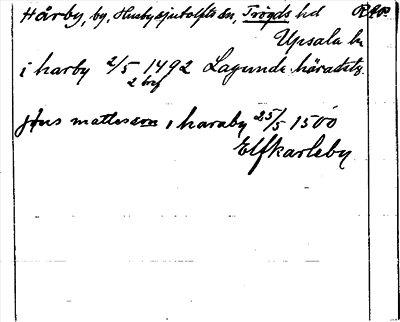 Hårby, by, Husbysjutolfts sn, Trögds hd
Upsala l.
i harby 2/5 1492 Lagunda häradstg.
2 brev
jöns mattesson i haraby 25/5 1500
Elfkarleby